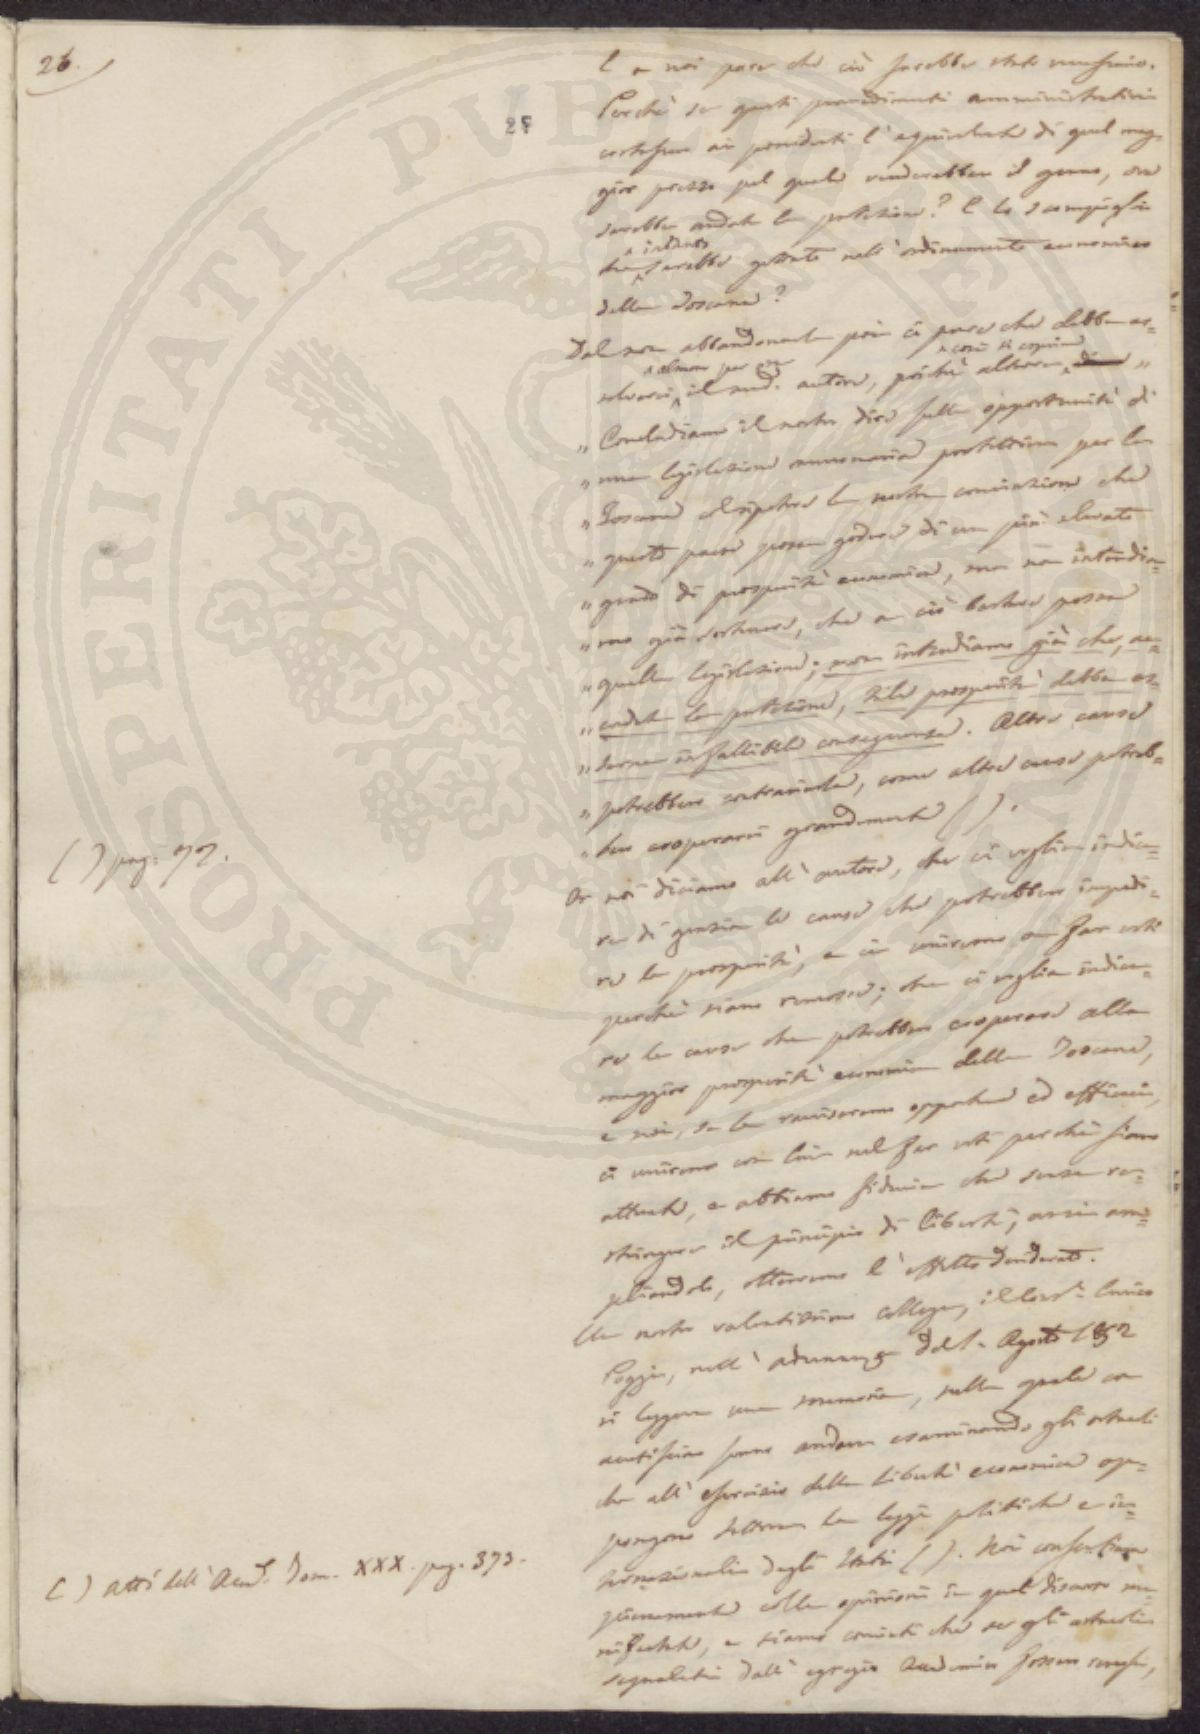 26.
27
E a noi pare che ciò sarebbe stato
Perché se questi provvedimenti amministrativi
ai possidenti l'equivalente di quel mag-
gior prezzo pel quale venderebbero il grano, ove
sarebbe andata la protezione? E lo scompiglio
che intanto sarebbe gettato nell'ordinamento economico
della Toscana?
Dal non abbandonarla però ci pare che debba as-
solversi, almeno per ora il med. autore, poiché altrove così si esprime „
„ Concludiamo il nostro dire sulla opportunità di
„ una legislazione annonaria protettiva per la
„ Toscana col ripetere la nostra convinzione che
„ questo paese possa godere di un più elevato
„ grado di prosperità economica, ma non intendia-
„ mo già sostenere, che a ciò bastare possa
„ quella legislazione; non intendiamo già che, ac-
„ cordata la protezione, tale prosperità debba es-
„ serne infallibile conseguenza. Altre cause
„ potrebbero contrariarla, come altre cause potreb-
„ bero cooperarvi grandemente ( ).
( ) pag. 972.
Or noi diciamo all'autore, che ci voglia indica-
re di grazia le cause che potrebbero impedi-
re la prosperità, e ci uniremo a far voti
perché siano rimosse; che ci voglia indica-
re le cause che potrebbero cooperare alla
maggior prosperità economica della Toscana,
e noi, se le ravviseremo opportune ed efficaci,
ci uniremo con lui nel far voti perché siano
attuate, e abbiamo fiducia che senza re-
stringere il principio di libertà, anzi am-
pliandolo, otterremo l'effetto desiderato.
Un nostro valentissimo collega, il Enrico
Poggi, nell'adunanza del 1. Agosto 1852
vi leggeva una memoria, nella quale con
acutissimo senno andava esaminando gli ostacoli
che all'esercizio della libertà economica op-
pongono tuttora le leggi politiche e in-
ternazionali degli Stati ( ). Noi consentiamo
( ) Atti dell'Accad. Tom. XXX. pag. 373.
pienamente colle opinioni in quel discorso ma-
nifestate, e siamo convinti che se gli ostacoli
segnalati dall'egregio Accademico fossero remossi,